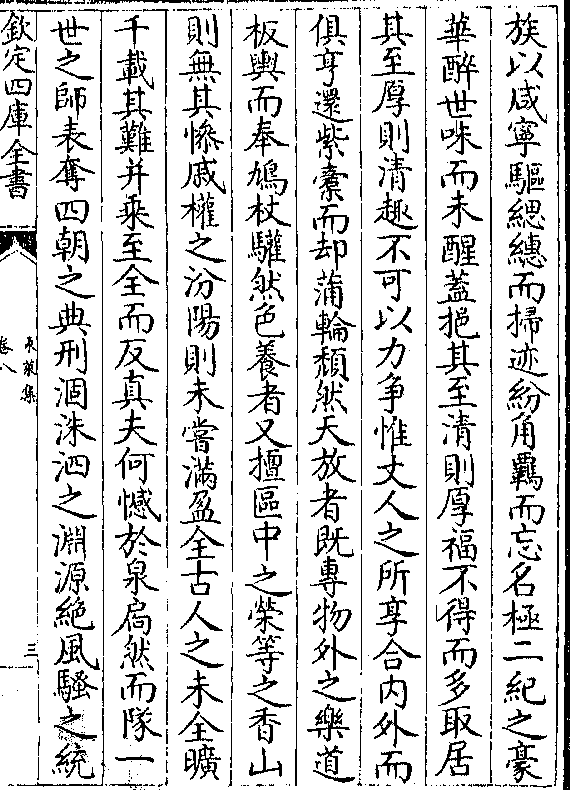 族以咸寧驅緦繐而掃迹紛角羈而忘名極二紀之豪
華醉世味而未醒蓋挹其至清則厚福不得而多取居
其至厚則清趣不可以力争惟丈人之所享合内外而
俱亨還紫橐而却蒲輪頽然天放者既專物外之樂道
板輿而奉鳩杖驩然色養者又擅區中之榮等之香山
則無其慘戚權之汾陽則未嘗滿盈全古人之未全曠
千載其難并乗至全而反真夫何憾於泉扃然而隊一
世之師表奪四朝之典刑涸洙泗之淵源絶風騷之統
欽定四庫全書
東萊集
卷八
三